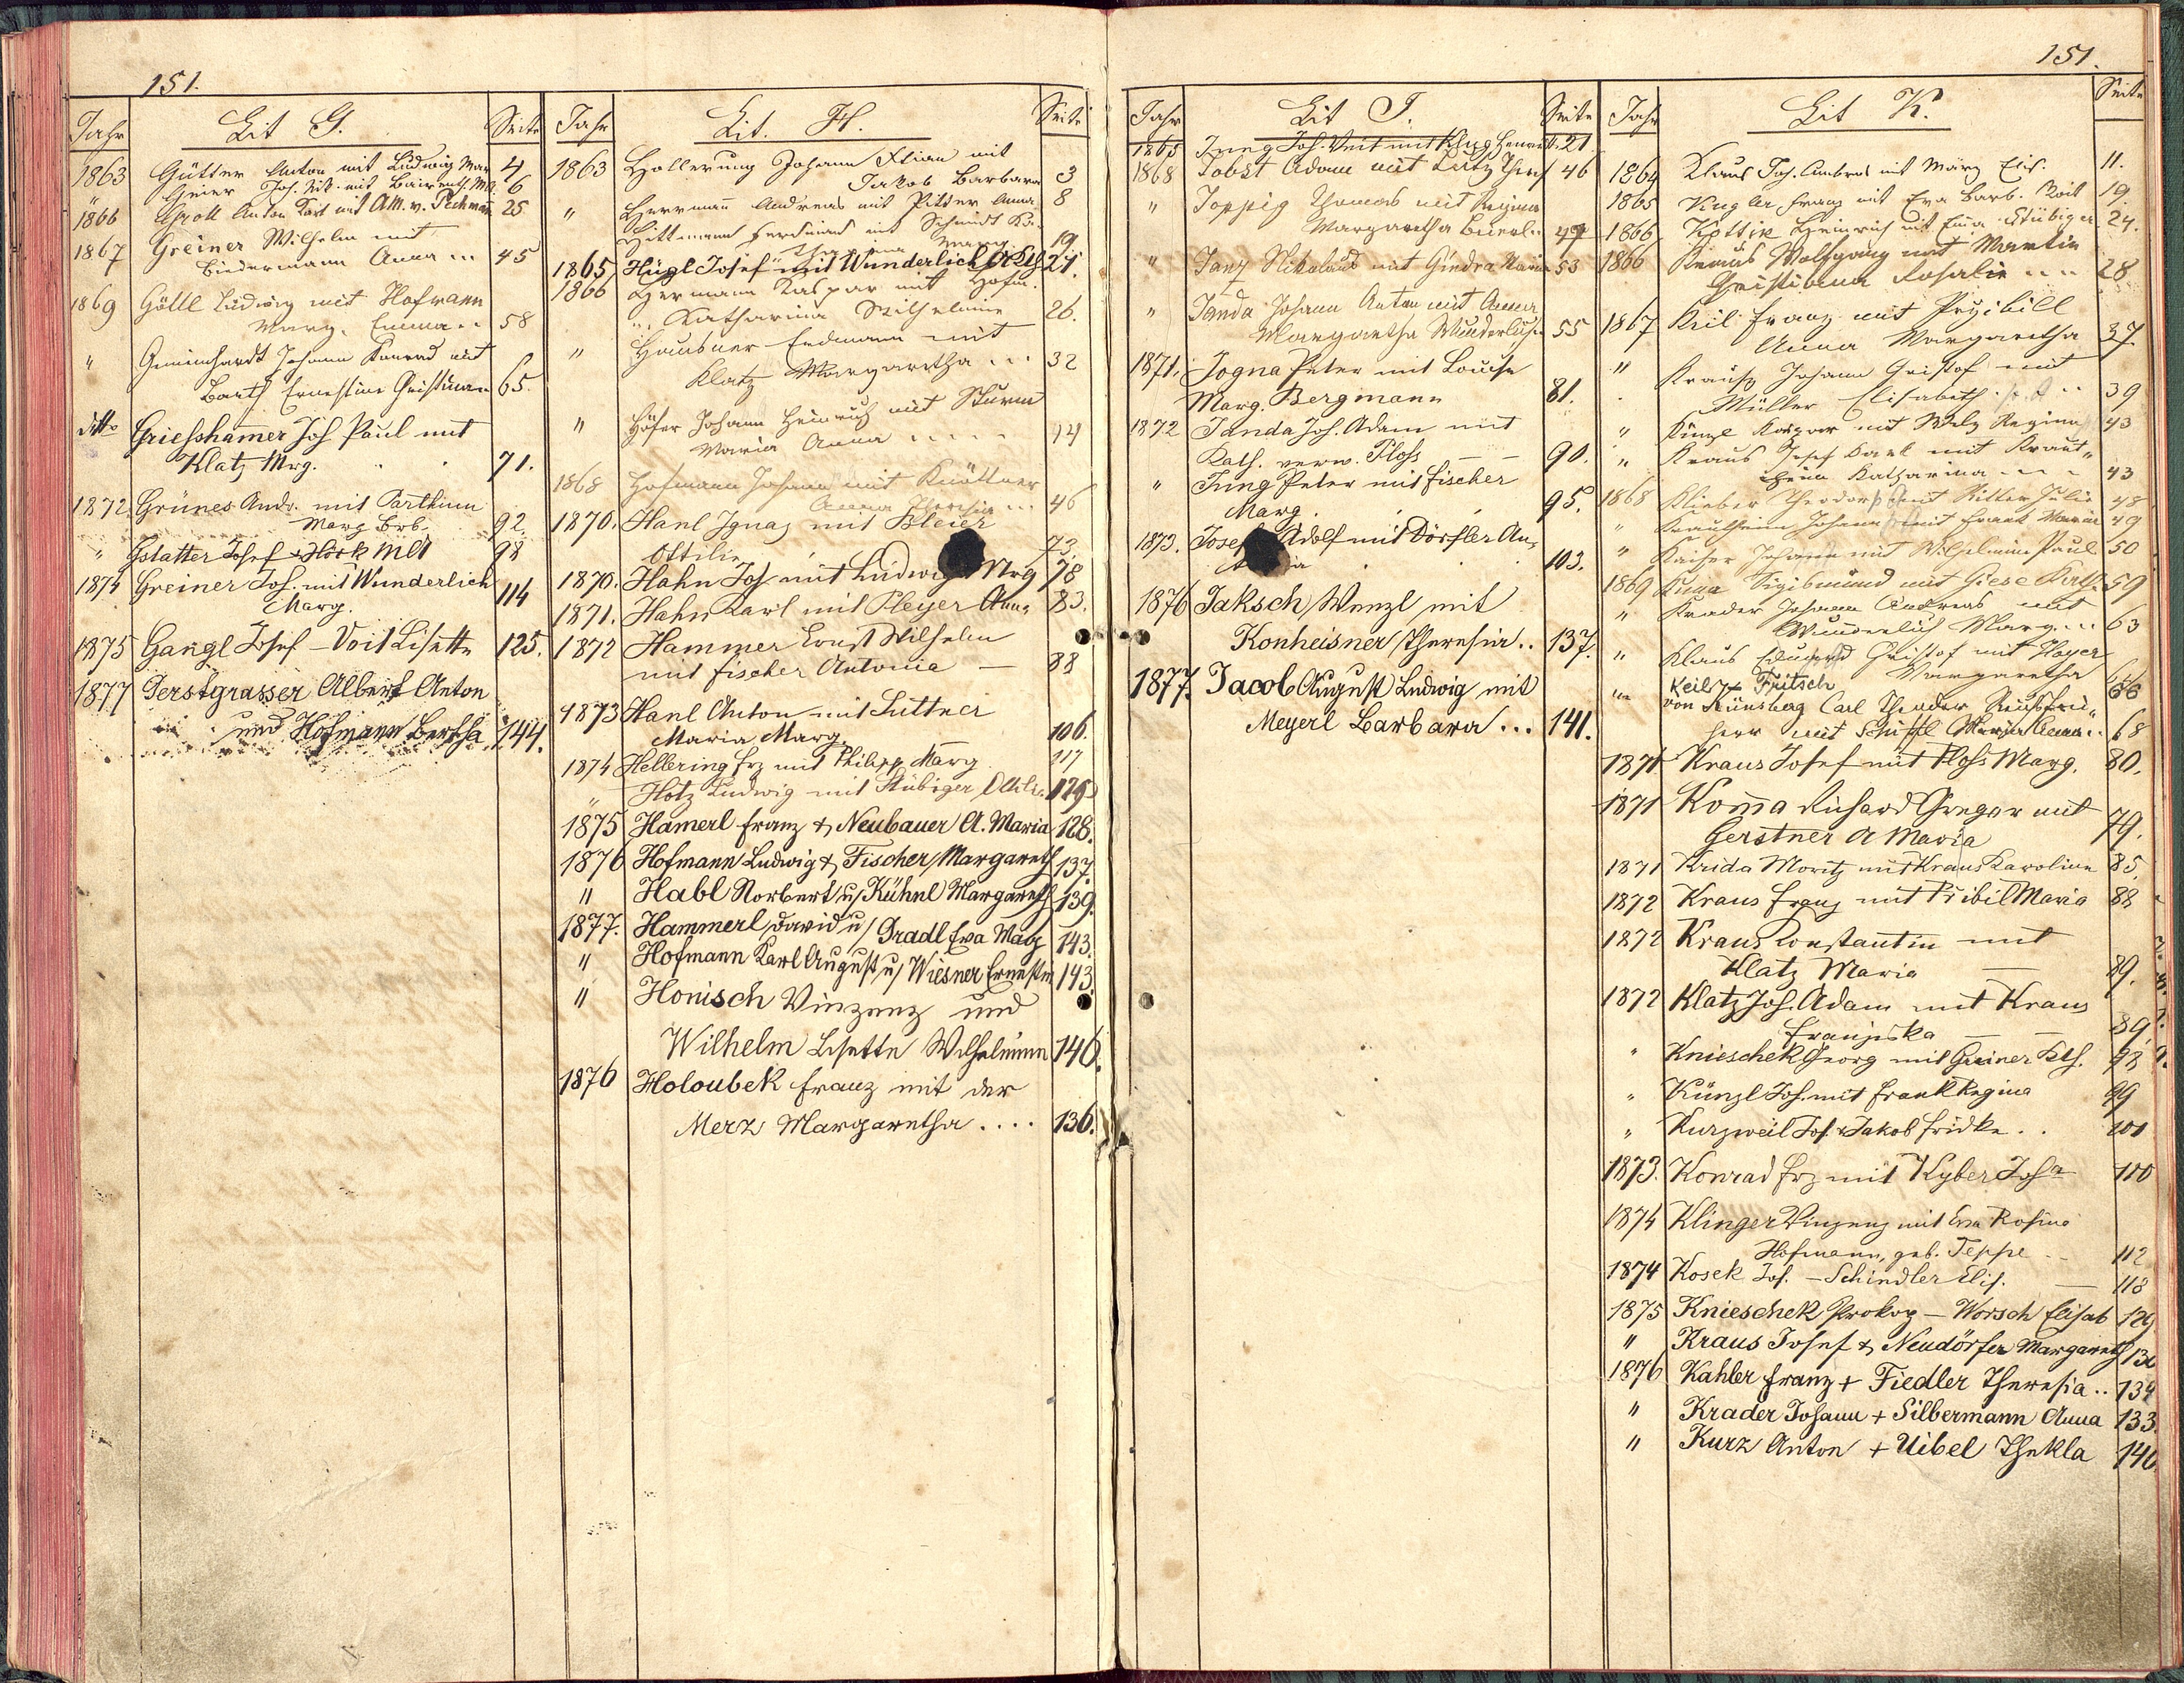 151.
Jahr Lit G. Seite
1863 Gütter Anton mit Ludwig Mar 4
" Geier Joh. Nik. mit Baireuth 6
1866 Groll Anton Karl mit AM. v. Pechmann 25
1867 Greiner Wilhelm mit
Biedermann Anna ... 45
1869 Göltl Ludwig mit Hofmann
Marg. Emma .. 58
" Gemeinhardt Johann Konrad mit
Barth Ernestine Christiana 65.
ditto Griesshamer Joh Paul mit
Klatz Mrg. . . 71.
1872. Grünes Andr. mit Parthum
Marg Brb. 92.
" Gstatter Josef + Hörk 98
1874 Greiner Joh. mit Wunderlich
Marg. 114
1875 Gangl Josef - Voit Lisette 125.
1877 Gerstgrasser Albert Anton
und Hofmann Bertha 144.
Jahr Lit. H. Seite
1863 Hollerung Johann mit
Jakob Barbara 3
" Herrmann Andreas mit Ritter Anna 8
Hittmann Ferdinand mit Schmidt
Marg. 19.
1865 Hügl Josef mit Wunderlich 21.
1866 Hermann Kaspar mit Hofm.
" Katharina Wilhelmine 26.
" Hausner Erdmann mit
Klatz Margaretha ... 32
" Höfer Johann Heinrich mit Sturm
Maria Anna ....
1868 Hofmann Johann mit Knöttner
Anna Theresia ... 46
1870. Hanl Ignaz mit Bleier
Ottilie 73.
1870. Hahn Jos. mit Ludwig Mrg 78
1871. Hahn Karl mit Pleyer Anna 83.
1872 Hammer Ernst Wilhelm
mit Fischer Antonia — 88
1873 Hanl Anton mit Luttner
Maria Marg. 106.
1874 Hellering Frz mit Philipp Marg 117
" Hotz Ludwig mit Stübiger Ottilie
1875 Hamerl Franz & Neubauer A. Maria 128.
1876 Hofmann Ludwig & Fischer Margareth 137.
" Habl Norbert u/ Kühnl Margareth 139.
1877. Hammerl David u/ Gradl Eva Marg 143.
" Hofmann Karl August u/ Wiesner Ernestin 143.
" Honisch Vinzenz und
Wilhelm Lisette Wilhelmine 146.
1876 Holoubek Franz mit der
Merz Margaretha .... 136.
151.
Jahr Lit J. Seite
1865 Jung Joh. Veit mit Klug 21
1868 Jobst Adam mit Lutz Theres 46
" Joppig Thomas mit Regina
Margaretha
" Janz Nikolaus mit Gindra Maria 53
" Janda Johann Anton mit Anna
Margaretha Wunderlich 55
1871. Jogna Peter mit Louise
Marg. Bergmann 81.
1872 Janda Joh. Adam mit
Kath. verw. Ploss — — 90.
" Jung Peter mit Fischer
Marg. . . 95.
1873. Josef Adolf mit Dörfler An-
. . 103.
1876 Jaksch Wenzl mit
Konheisner Theresia .. 137.
1877. Jacob August Ludwig mit
Meyerl Barbara ... 141.
Jahr Lit K. Seite
1864 Klaus Joh. Ambros mit März Elis. 11.
1865 Kugler Franz mit Eva Barb. Voit 19
1866 Kottik Heinrich mit Ema Stübiger 24.
1866 Kraus Wolfgang mit Martin
Christiana Rosalie ... 28
1867 Keil Franz mit Przibill
Anna Margaretha 37.
" Krauss Johann Christof mit
Müller Elisabeth .. 39
" Künzl Kaspar mit Welz Regina 43
" Kraus Josef Karl mit Kraut-
heim Katharina ... 43
1868 Klieber Theodor mit Ritter Julie 48
" Krautheim Johann mit Frank Maria 49
" Kaiser Johann mit Wilhelmine Paul 50
1869 Kuna Sigismund mit Giese Kath. 59
" Krader Johann Andreas mit
Wunderlich Marg... 63
" Klaus Eduard Christof mit Pleyer
Margaretha
" Keil + Fritsch 66
von Künsberg Carl Theodor Reichsfrei-
herr mit Schipfl Maria Anna .. 68
1871 Kraus Josef mit Ploss Marg. 80.
1871 Koma Richard Gregor mit
Gerstner A Maria 79.
1871 Krida Moritz mit Kraus Karoline 85.
1872 Kraus Franz mit Pribil Maria 88
1872 Kraus Constantin mit
Klatz Maria — 89.
1872 Klatz Joh. Adam mit Kraus
Franziska — — 89.
" Knieschek Georg mit Greiner Kth. 98
" Künzl Joh. mit Frank Regina 99
" Kurzweil Jos. + Jakob Fridke . . 101
1873. Konrad Frz mit Kyber Josa 110
1874 Klinger Vinzenz mit Eva Rosina
Hofmann, geb. Teppe . . 112
1874 Kosek Jos. — Schindler Elis. — 118
1875 Knieschek Prokop — Worsch Elisab 129
" Kraus Josef & Neudörfer Margareth
1876 Kahler Franz + Fiedler Theresia .. 134
" Krader Johann + Silbermann Anna 133.
" Kurz Anton + Uibel Thekla 140.